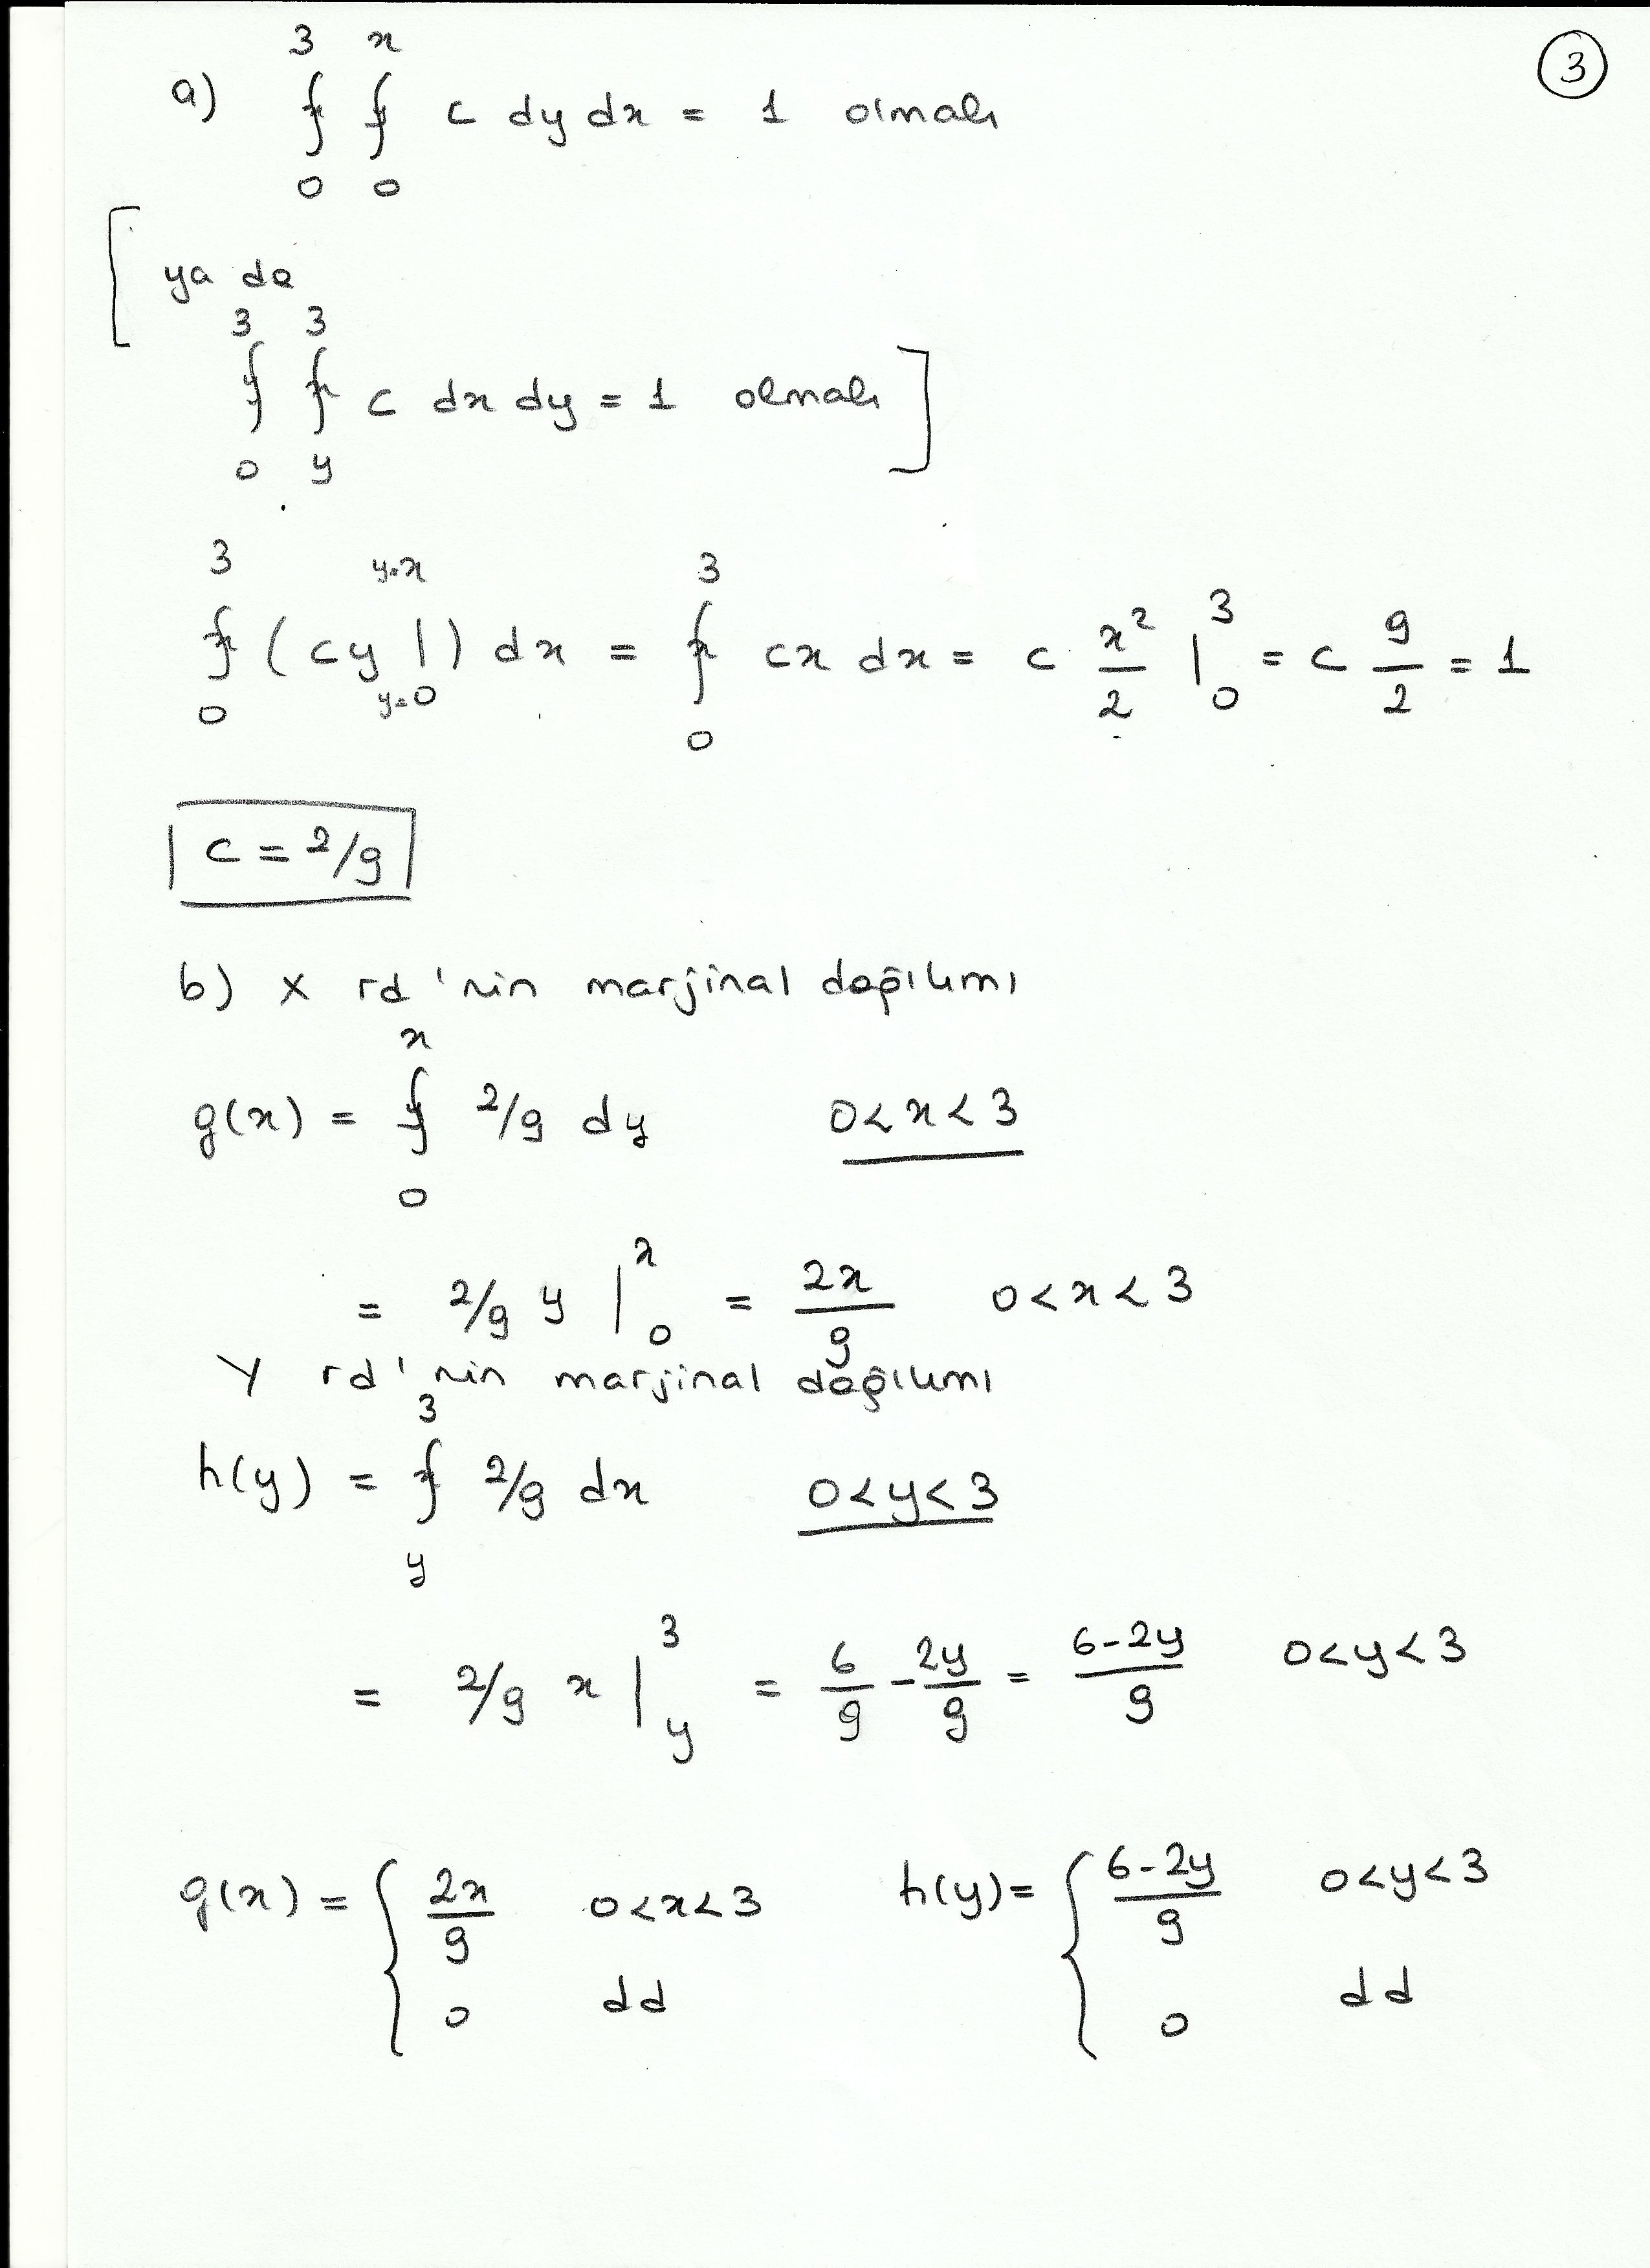 3
a) ∫₀³ ∫₀ˣ c dy dx = 1 olmalı
[ ya da
∫₀³ ∫ᵧ³ c dx dy = 1 olmalı ]
∫₀³ ( cy |_{y=0}^{y=x} ) dx = ∫₀³ cx dx = c x²/2 |₀³ = c 9/2 = 1
c = 2/9
b) X rd'nin marjinal dağılımı
g(x) = ∫₀ˣ 2/9 dy 0<x<3
= 2/9 y |₀ˣ = 2x/9 0<x<3
Y rd'nin marjinal dağılımı
h(y) = ∫ᵧ³ 2/9 dx 0<y<3
= 2/9 x |ᵧ³ = 6/9 - 2y/9 = 6-2y/9 0<y<3
g(x) = { 2x/9 0<x<3 h(y) = { 6-2y/9 0<y<3
0 dd 0 dd